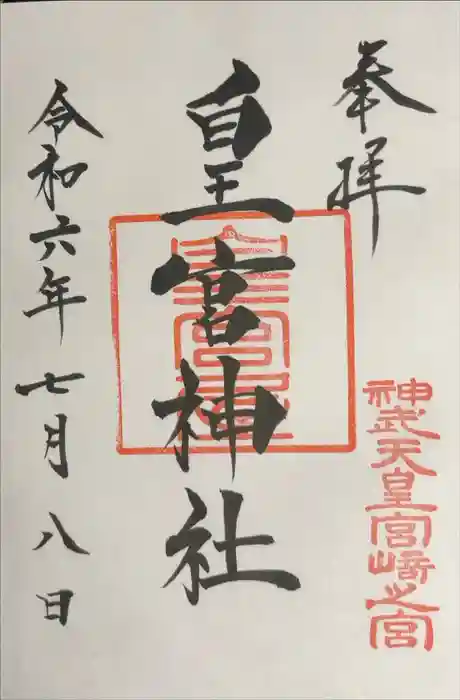 奉拝
神武天皇宮崎之宮
皇宮神社
皇宮屋
令和六年七月八日